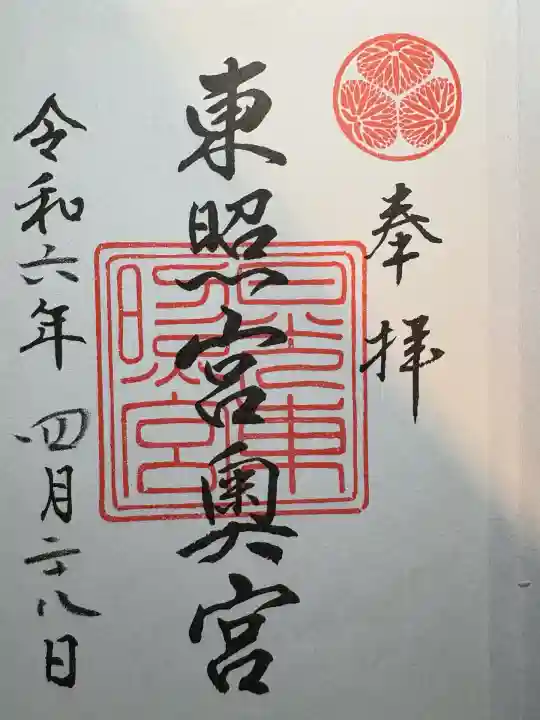 奉拝
東照宮奥宮
日光東照宮
令和六年 四月二十八日